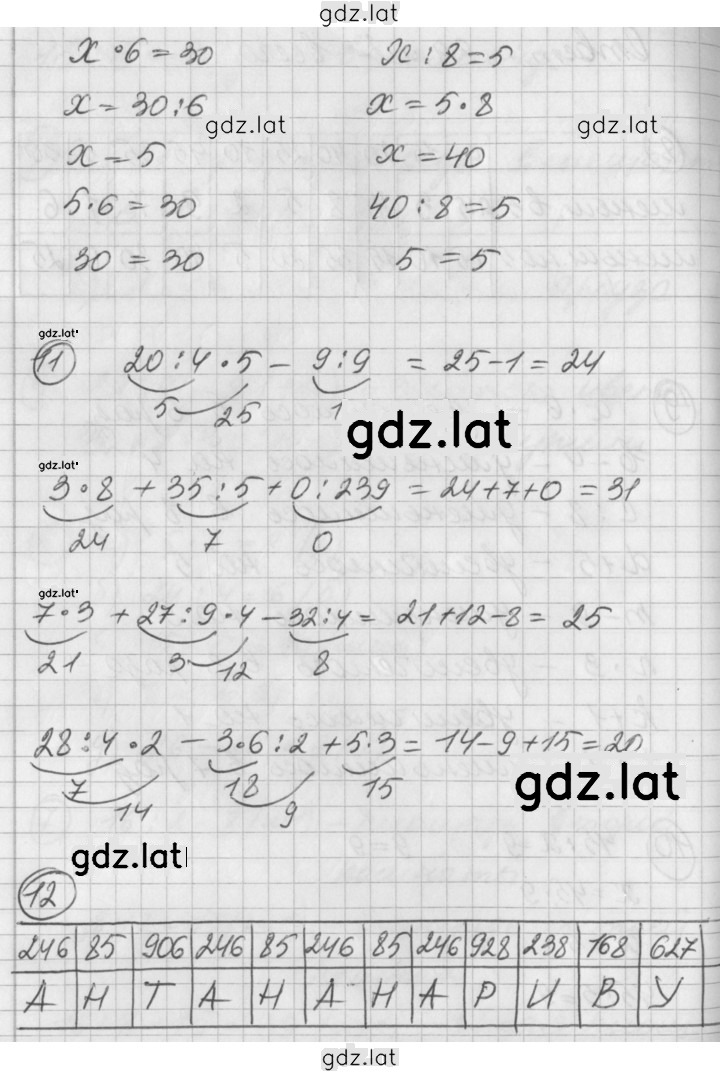 gdz.lat
x·6=30 x:8=5
x=30:6 x=5·8
gdz.lat gdz.lat
x=5 x=40
5·6=30 40:8=5
30=30 5=5
gdz.lat
11 20:4·5-9:9=25-1=24
5 25 1
gdz.lat
gdz.lat
3·8+35:5+0:239=24+7+0=31
24 7 0
gdz.lat
7·3+27:9·4-32:4=21+12-8=25
21 3 12 8
28:4·2-3·6:2+5·3=14-9+15=20
7 14 18 9 15
gdz.lat
gdz.lat
12
246 85 906 246 85 246 85 246 928 238 168 627
А Н Т А Н А Н А Р И В У
gdz.lat